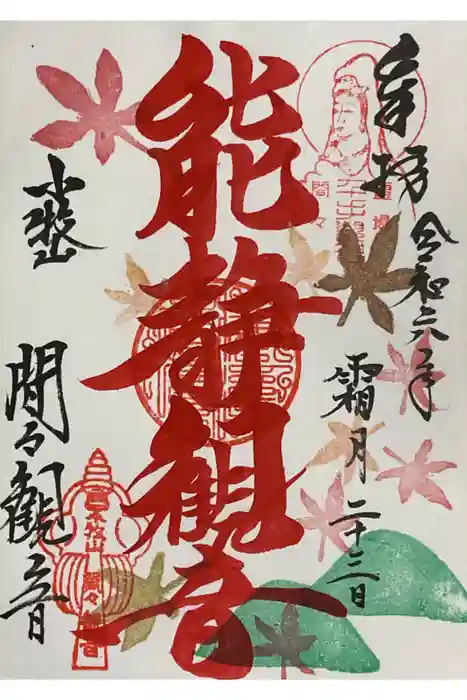 奉拝
令和六年
霜月二十三日
能静観音
小牧山
間々観音
間々